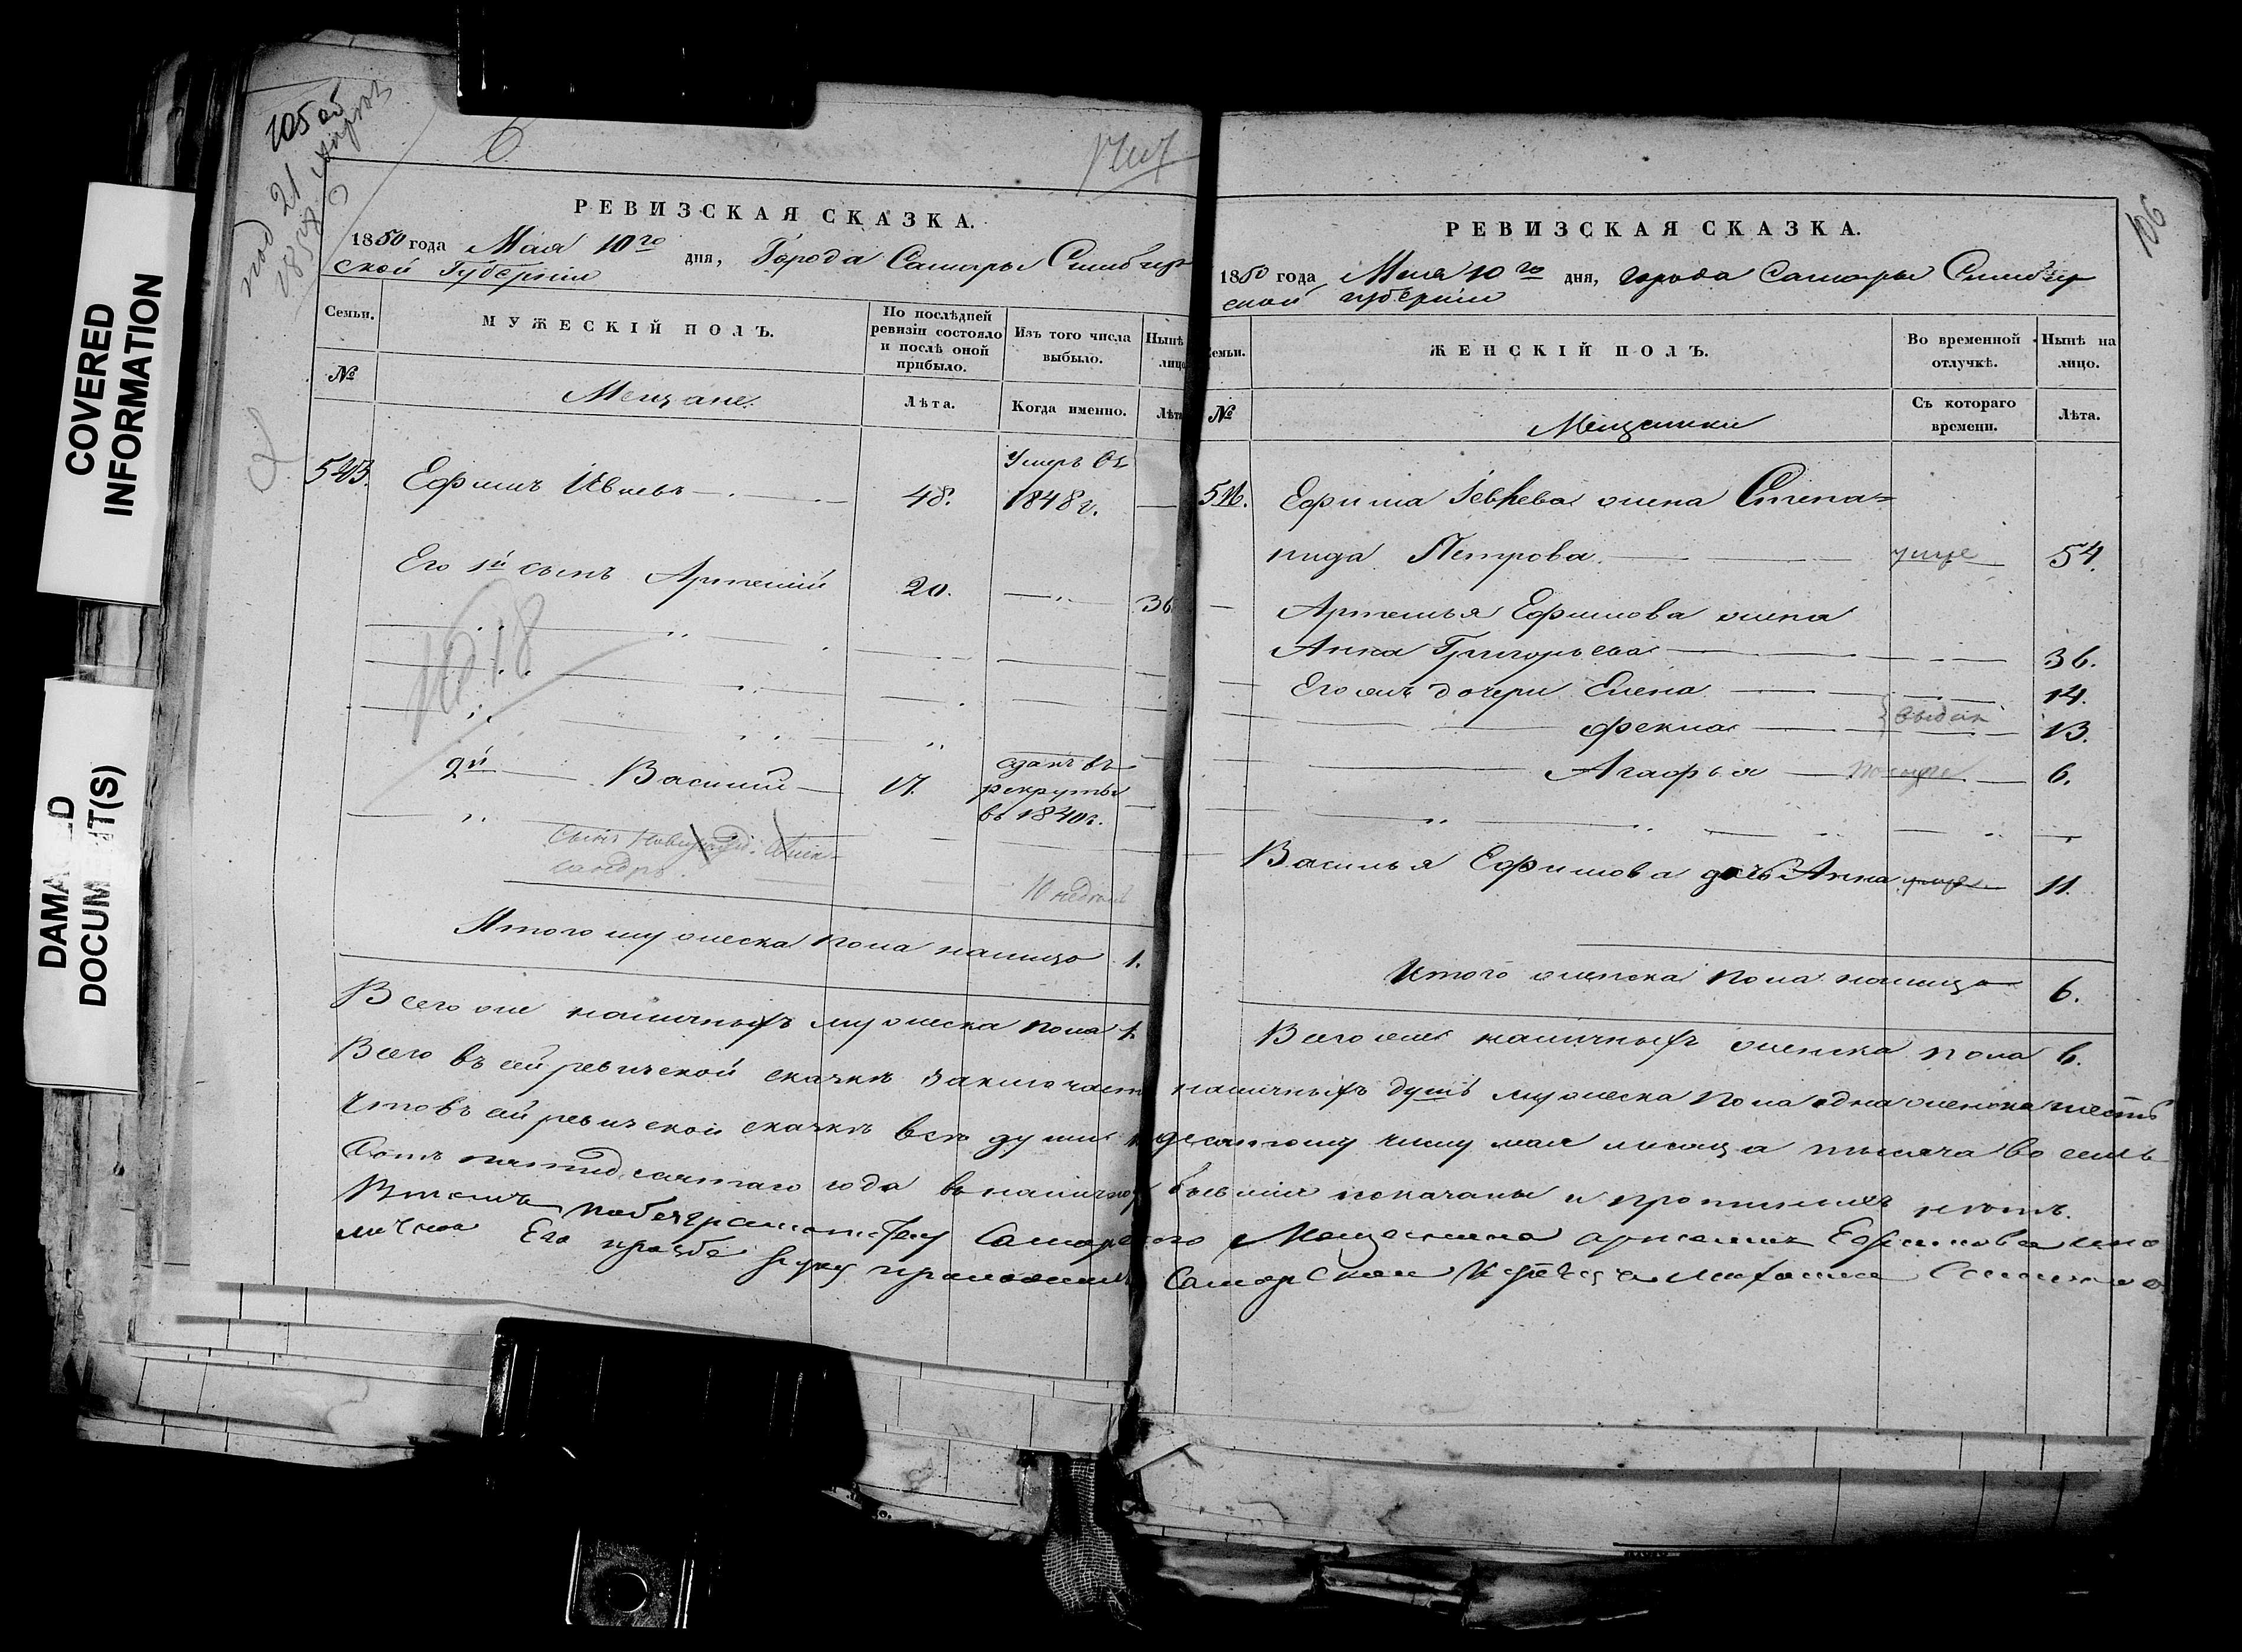 COVERED
INFORMATION
DAMA D
DOCUM T(S)
105 об
под 21 Апрѣл
1858
РЕВИЗСКАЯ СКАЗКА.
1850 года Мая 10го дня, Города Самары Симбир
ской Губерніи
Семьи.
МУЖЕСКІЙ ПОЛЪ.
По послѣдней
ревизіи состояло
и послѣ оной
прибыло.
Изъ того числа
выбыло.
Нынѣ
лицо
№
Мещане.
Лѣта.
Когда именно.
Лѣта
543. Ефимъ Ивлевъ 48.
Умеръ
1848 г.
Его 1й сынъ Артемій 20. 36
1618
2й Василій 17.
сданъ въ
рекруты
въ 1840 г.
Сынъ Алек-
сандръ.
10 недѣль
Итого мужеска пола налицо 1.
Всего же наличныхъ мужеска пола 1.
106
РЕВИЗСКАЯ СКАЗКА.
1850 года Мая 10го дня, города Самары Симбир
ской губерніи
емьи.
ЖЕНСКІЙ ПОЛЪ.
Во временной
отлучкѣ.
Нынѣ на
лицо.
№
Мещанки
Съ котораго
времени.
Лѣта.
Ефима Іевлева жена Степа=
нида Петрова 54.
Артемья Ефимова жена
Анна Григорьева 36.
Его жъ дочери Елена 14.
Фекла выдан 13.
Агафья 6.
Василья Ефимова дочь Анна 11.
Итого женска пола налицо 6.
Всего же наличныхъ женска пола 6.
Всего въ сей ревизской сказкѣ заключает наличныхъ душъ мужеска пола одна женска шесть
Что въ сей ревизской сказкѣ всѣ души к десятому числу мая месяца тысяча во семь
сотъ пятидесятаго года въ налично бывшіи показаны и прописныхъ нѣтъ.
Въ томъ по безграмотству Самарского Мещанина Артемия Ефимова и по
личной Его прозбе руку приложилъ Самарской